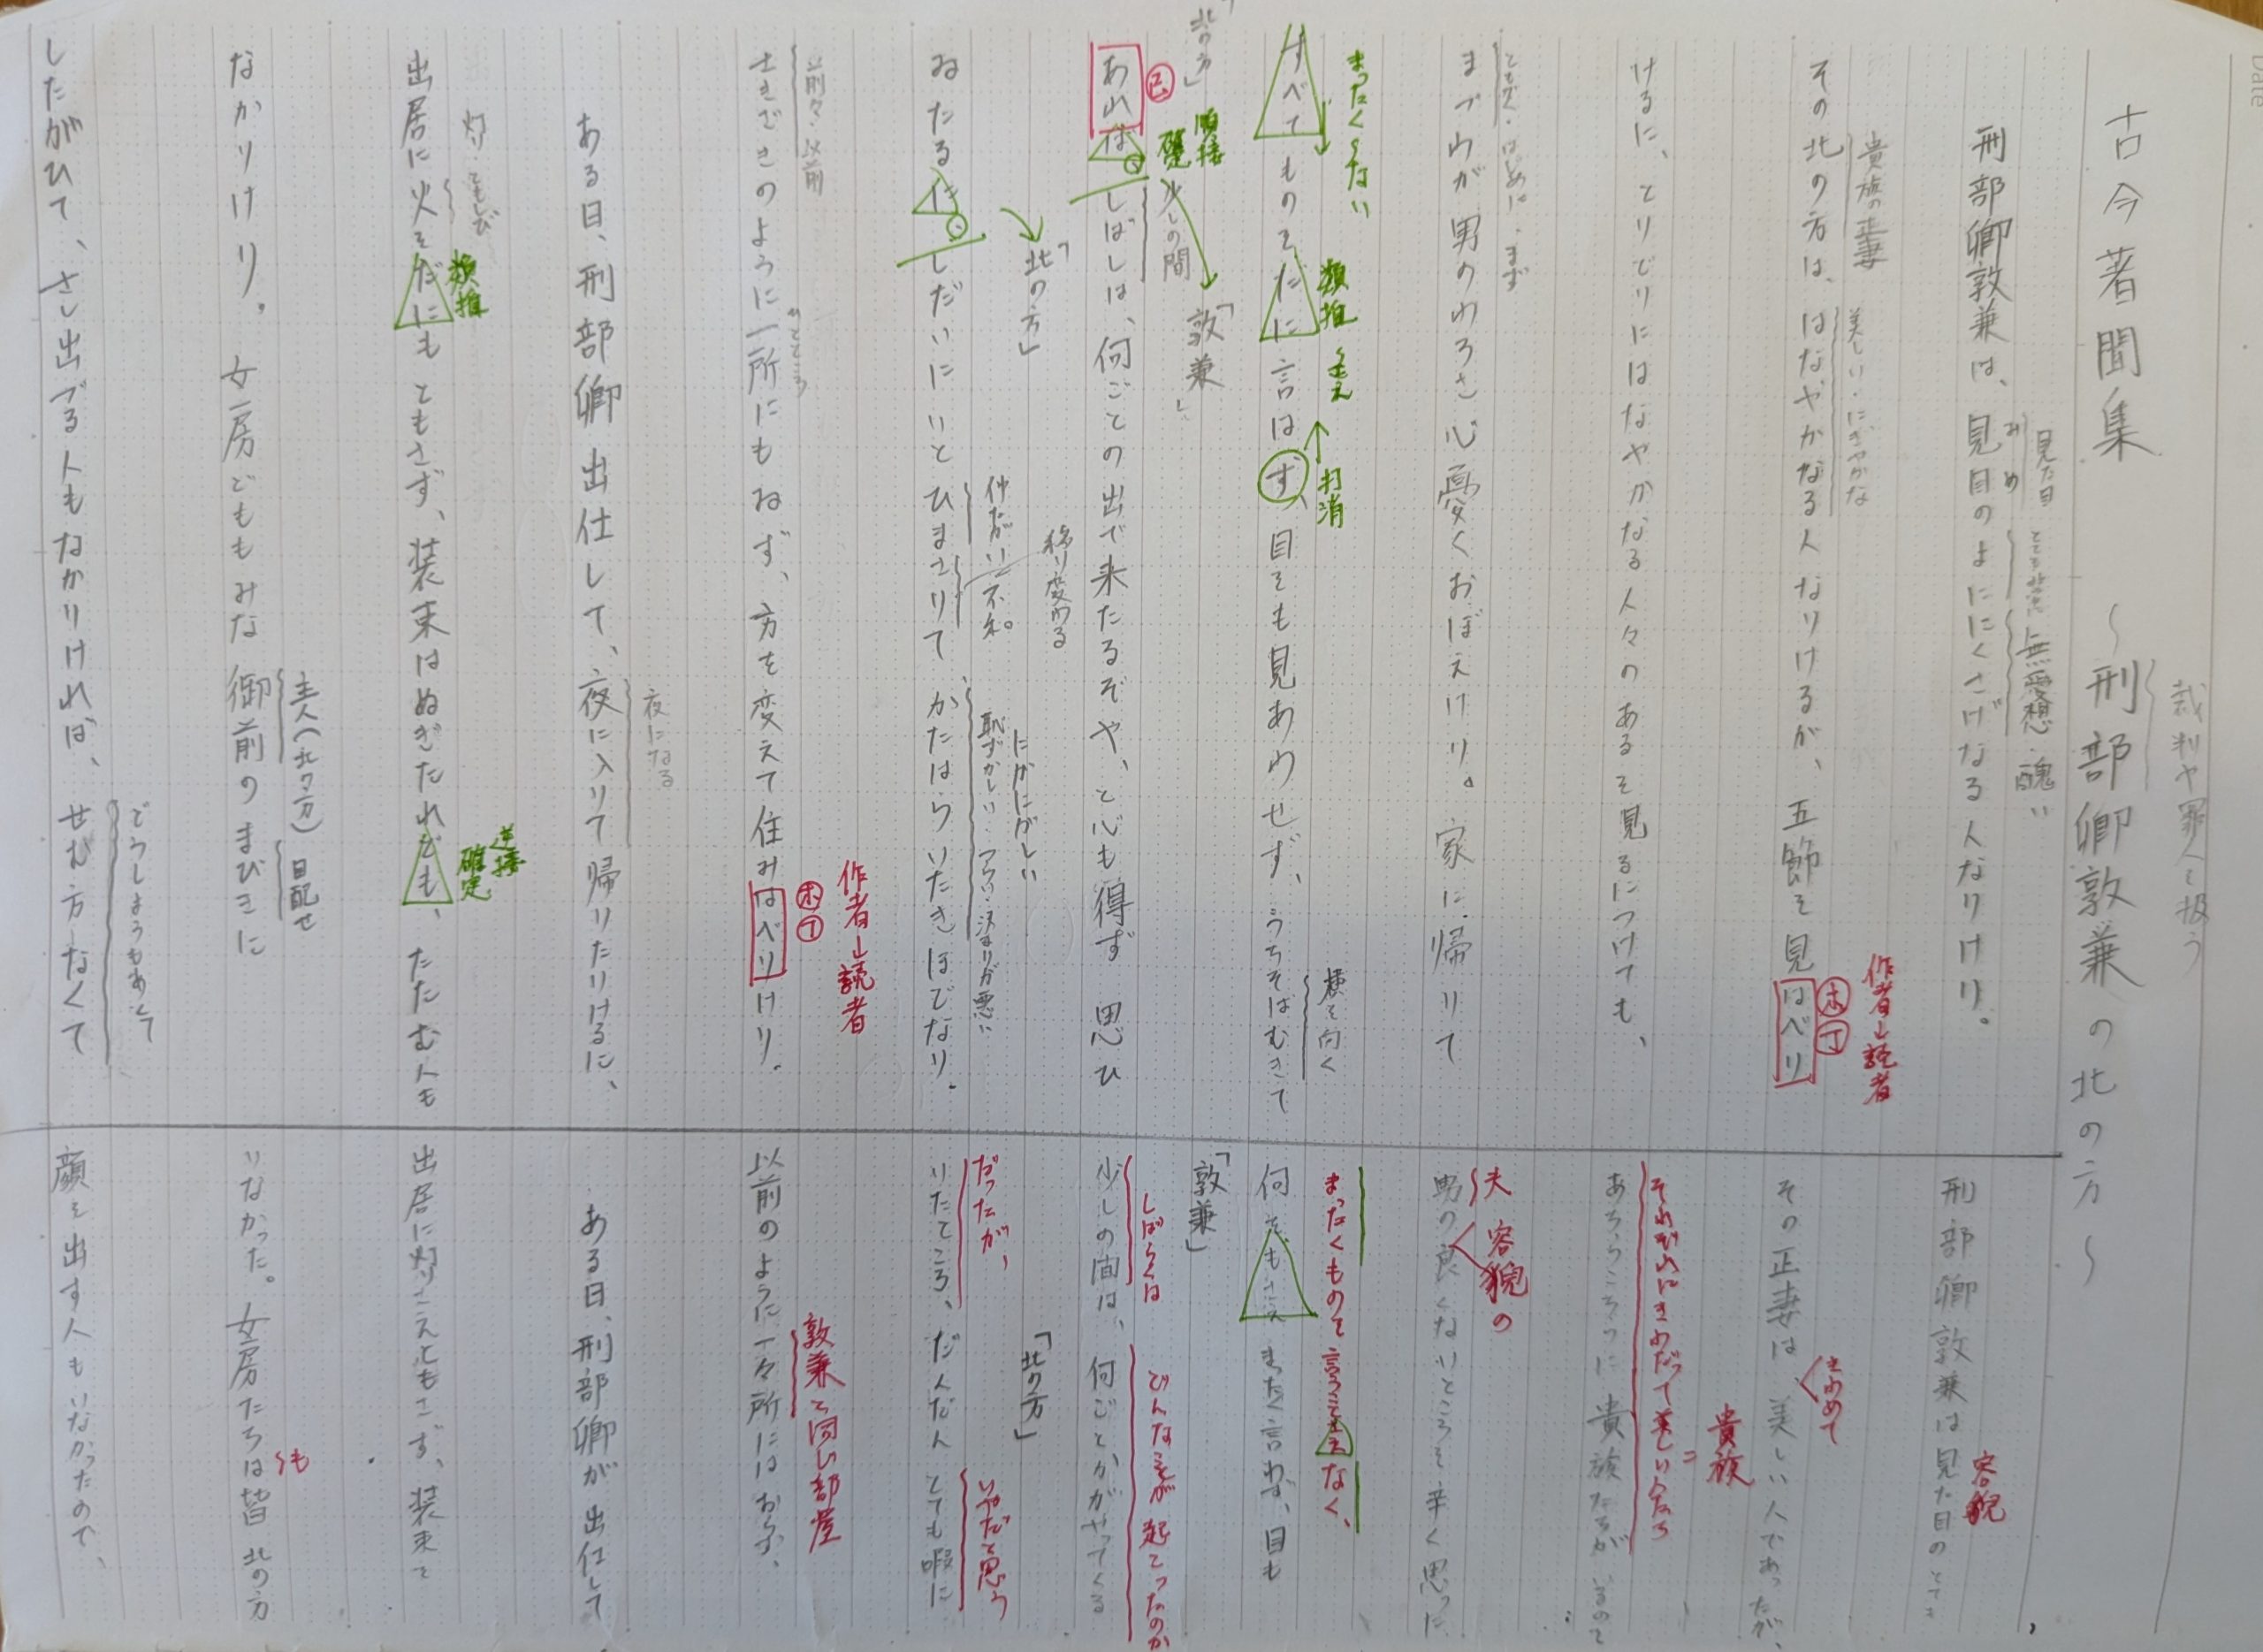 Date
裁判や罪人を扱う
古今著聞集 〜刑部卿敦兼の北の方〜
見た目
とても 非常に 無愛想・醜い
みめ
刑部卿敦兼は、見目のよににくさげなる人なりけり。
貴族の正妻
美しい・にぎやかな
作者→読者
ホ丁
その北の方は、はなやかなる人なりけるが、五節を見はべり
けるに、とりどりにはなやかなる人々のあるを見るにつけても、
ともかく・はじめに・まず
まづわが男のわろさ心憂くおぼえけり。家に帰りて
まったく〜ない
類推 〜さえ
打消
横を向く
すべてものをだに言はず、目をも見あわせず、うちそばむきて
北の方」
「敦兼」
已
順接
確定
少しの間
あれば、しばしは、何ごとの出で来たるぞや、と心も得ず思ひ
「北の方」
移り変わる
仲たがい 不和。
にがにがしい
恥ずかしい・つらい・決まりが悪い
ゐたるに、しだいにいとひまさりて、かたはらいたきほどなり。
以前々・以前
ひとところ
作者→読者
ホ丁
さきざきのように一所にもゐず、方を変えて住みはべりけり。
夜になる
ある日、刑部卿出仕して、夜に入りて帰りたりけるに、
灯・ともしび
類推
逆接
確定
出居に火をだにもともさず、装束はぬぎたれども、たたむ人も
主人(北の方)
目配せ
なかりけり。女房どももみな御前のまびきに
どうしようもなくて
したがひて、さし出づる人もなかりければ、せむ方なくて
容貌
刑部卿敦兼は見た目のとても
きわめて
その正妻は美しい人であったが、
貴族
それぞれにきわだって美しい人たち
あちらこちらに貴族たちがいるので
夫
容貌の
男の良くないところを辛く思った
まったくものを言うことさえなく、
何でもさえまったく言わず、目も
「敦兼」
しばらくは
どんなことが起こったのか
少しの間は、何ごとかがやってくる
「北の方」
だったが、
いやだと思う
いたところ、だんだんとても暇に
敦兼と同じ部屋
以前のように一々所にはおらず、
ある日、刑部卿が出仕して
出居に灯りさえともさず、装束を
も
いなかった。女房たちは皆北の方
顔を出す人もいなかったので、